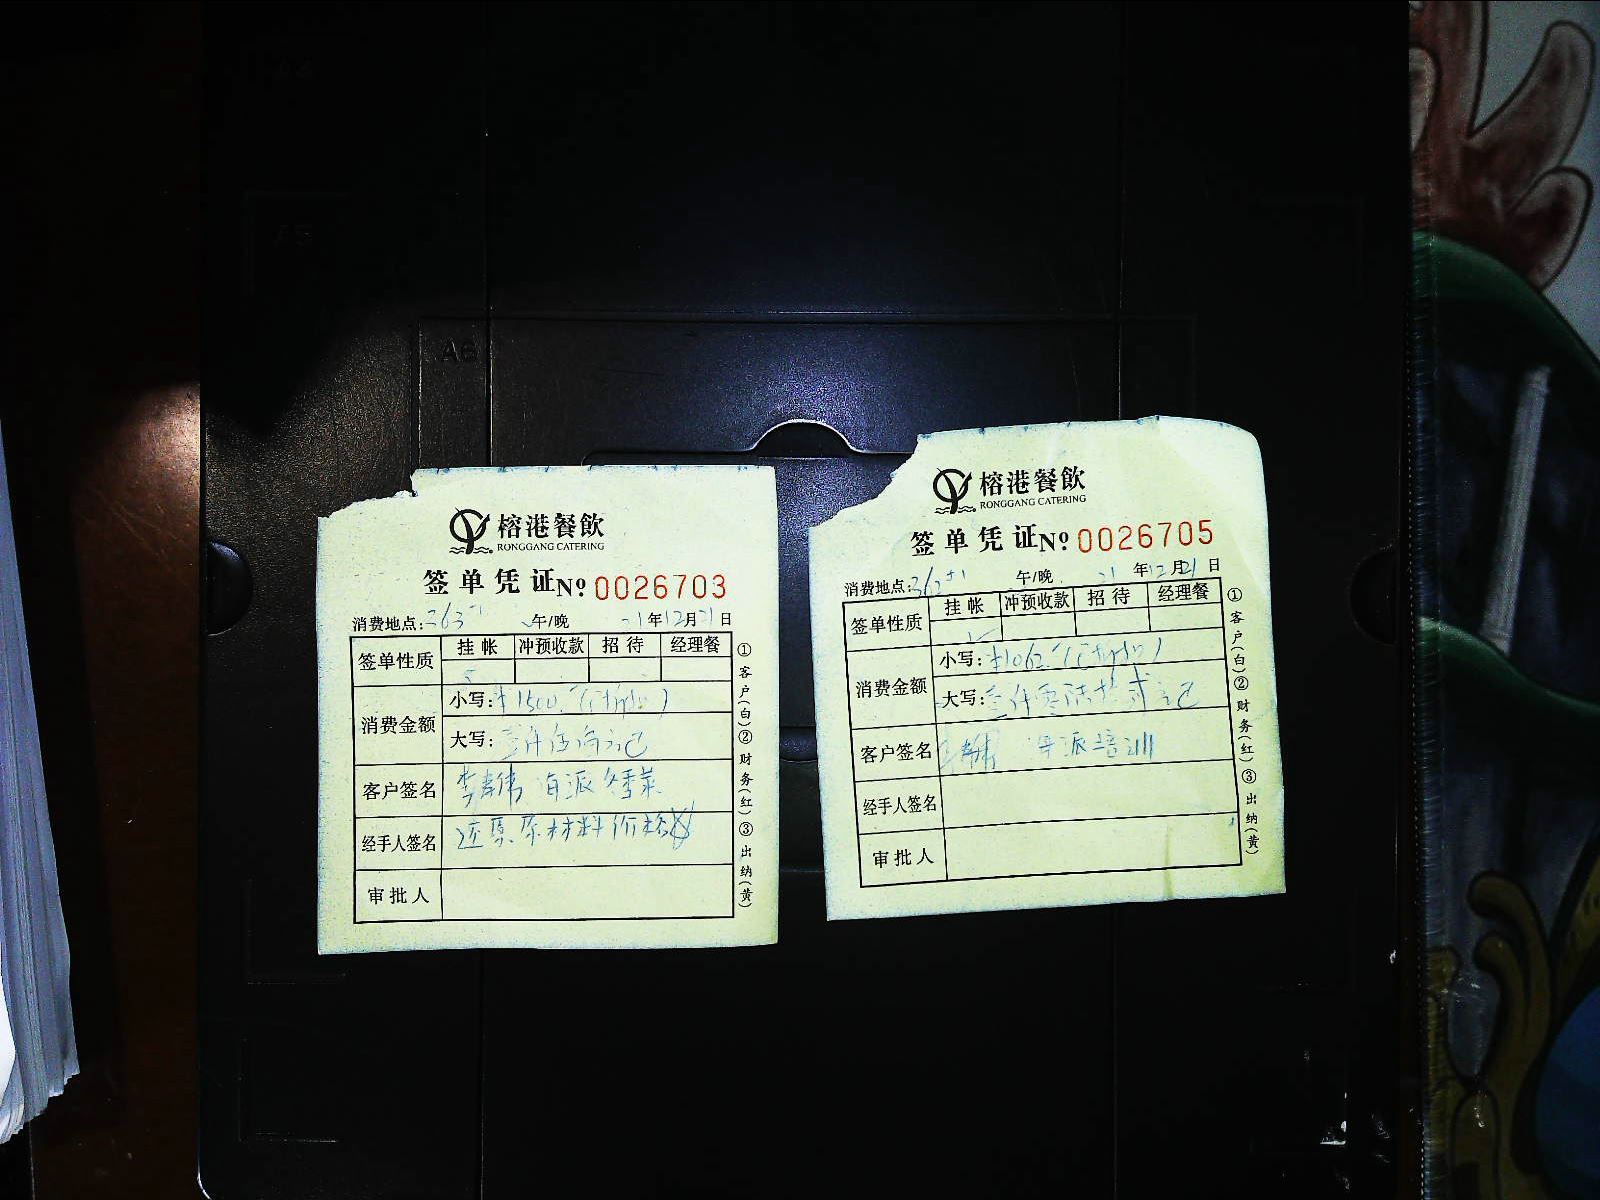 榕港餐飲
RONGGANG CATERING
签单凭证 № 0026703
消费地点: 午/晚 21年12月21日
签单性质 挂帐 冲预收款 招待 经理餐
消费金额 小写:¥1500
大写:
客户签名 海派冬季菜
经手人签名 原材料价格
审批人
①客户(白)②财务(红)③出纳(黄)
榕港餐飲
RONGGANG CATERING
签单凭证 № 0026705
消费地点: 午/晚 21年12月21日
签单性质 挂帐 冲预收款 招待 经理餐
消费金额 小写:¥1062
大写:
客户签名 海派培训
经手人签名
审批人
①客户(白)②财务(红)③出纳(黄)
A6